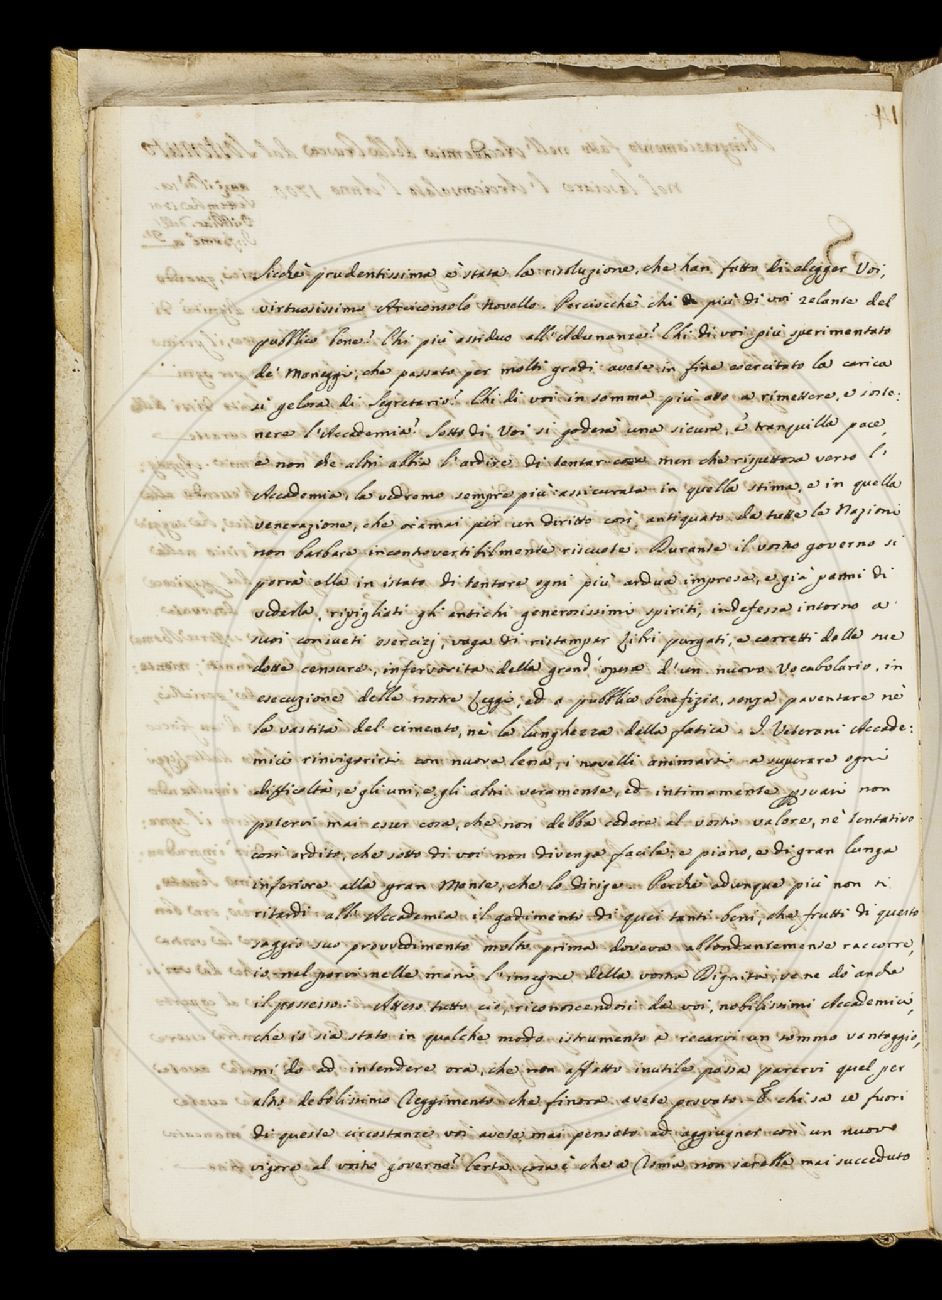 Sicchè prudentissima è stata la risoluzione, che han fatto di elegger Voi,
virtuosissimo Arciconsolo Novello. Perciocchè chi più di voi zelante del
pubblico bene? Chi più assiduo all'Adunanze? Chi di voi più sperimentato
de' Maneggi, che passato per molti gradi avete in fine esercitato la carica
sì gelosa di Segretario? Chi di voi in somma più atto a rimettere, e soste:
nere l'Accademia? Sotto di Voi si goderà una sicura, e tranquilla pace,
e non che altri abbia l'ardire di tentar cosa men che rispettosa verso l'
Accademia, la vedremo sempre più assicurata in quella stima, e in quella
venerazione, che oramai per un diritto così antiquato da tutte le Nazioni
non barbare incontrovertibilmente riscuote. Durante il vostro governo si
porrà ella in istato di tentare ogni più ardua impresa, e già parmi di
vederla, ripigliati gli antichi generosissimi spiriti, indefessa intorno a
suoi consueti esercizj, vaga di ristampar Libri purgati, e corretti dalle sue
dotte censure, infervorita della grand' opera d'un nuovo Vocabolario, in
esecuzione delle nostre Leggi, ed a pubblico benefizio, senza paventare nè
la vastità del cimento, nè la lunghezza della fatica. I Veterani Accade:
mici rinvigorirsi con nuova lena, i novelli animarsi a superare ogni
difficoltà, e gli uni, e gli altri veramente, ed intimamente non
potervi mai esser cosa, che non debba cedere al vostro valore, nè tentativo
così ardito, che sotto di voi non divenga facile, e piano, e di gran lunga
inferiore alla gran Mente, che lo dirige. Perchè adunque più non si
ritardi all'Accademia il godimento di quei tanti beni, che frutti di questo
saggio suo provvedimento molto prima doveva abbondantemente raccorre,
io nel porvi nelle mani l'insegne della vostra Dignità, ve ne do anche
il possesso. Atteso tutto ciò, riconoscendosi da voi, nobilissimi Accademici,
che io sia stato in qualche modo istrumento a recarvi un sommo vantaggio,
mi do ad intendere ora, che non affatto inutile possa parervi quel per
altro debolissimo Reggimento che finora avete provato. E chi sa se fuori
di queste circostanze voi avete mai pensato ad aggiugner così un nuovo
vigore al vostro governo? Certa cosa è che a Roma non sarebbe mai succeduto